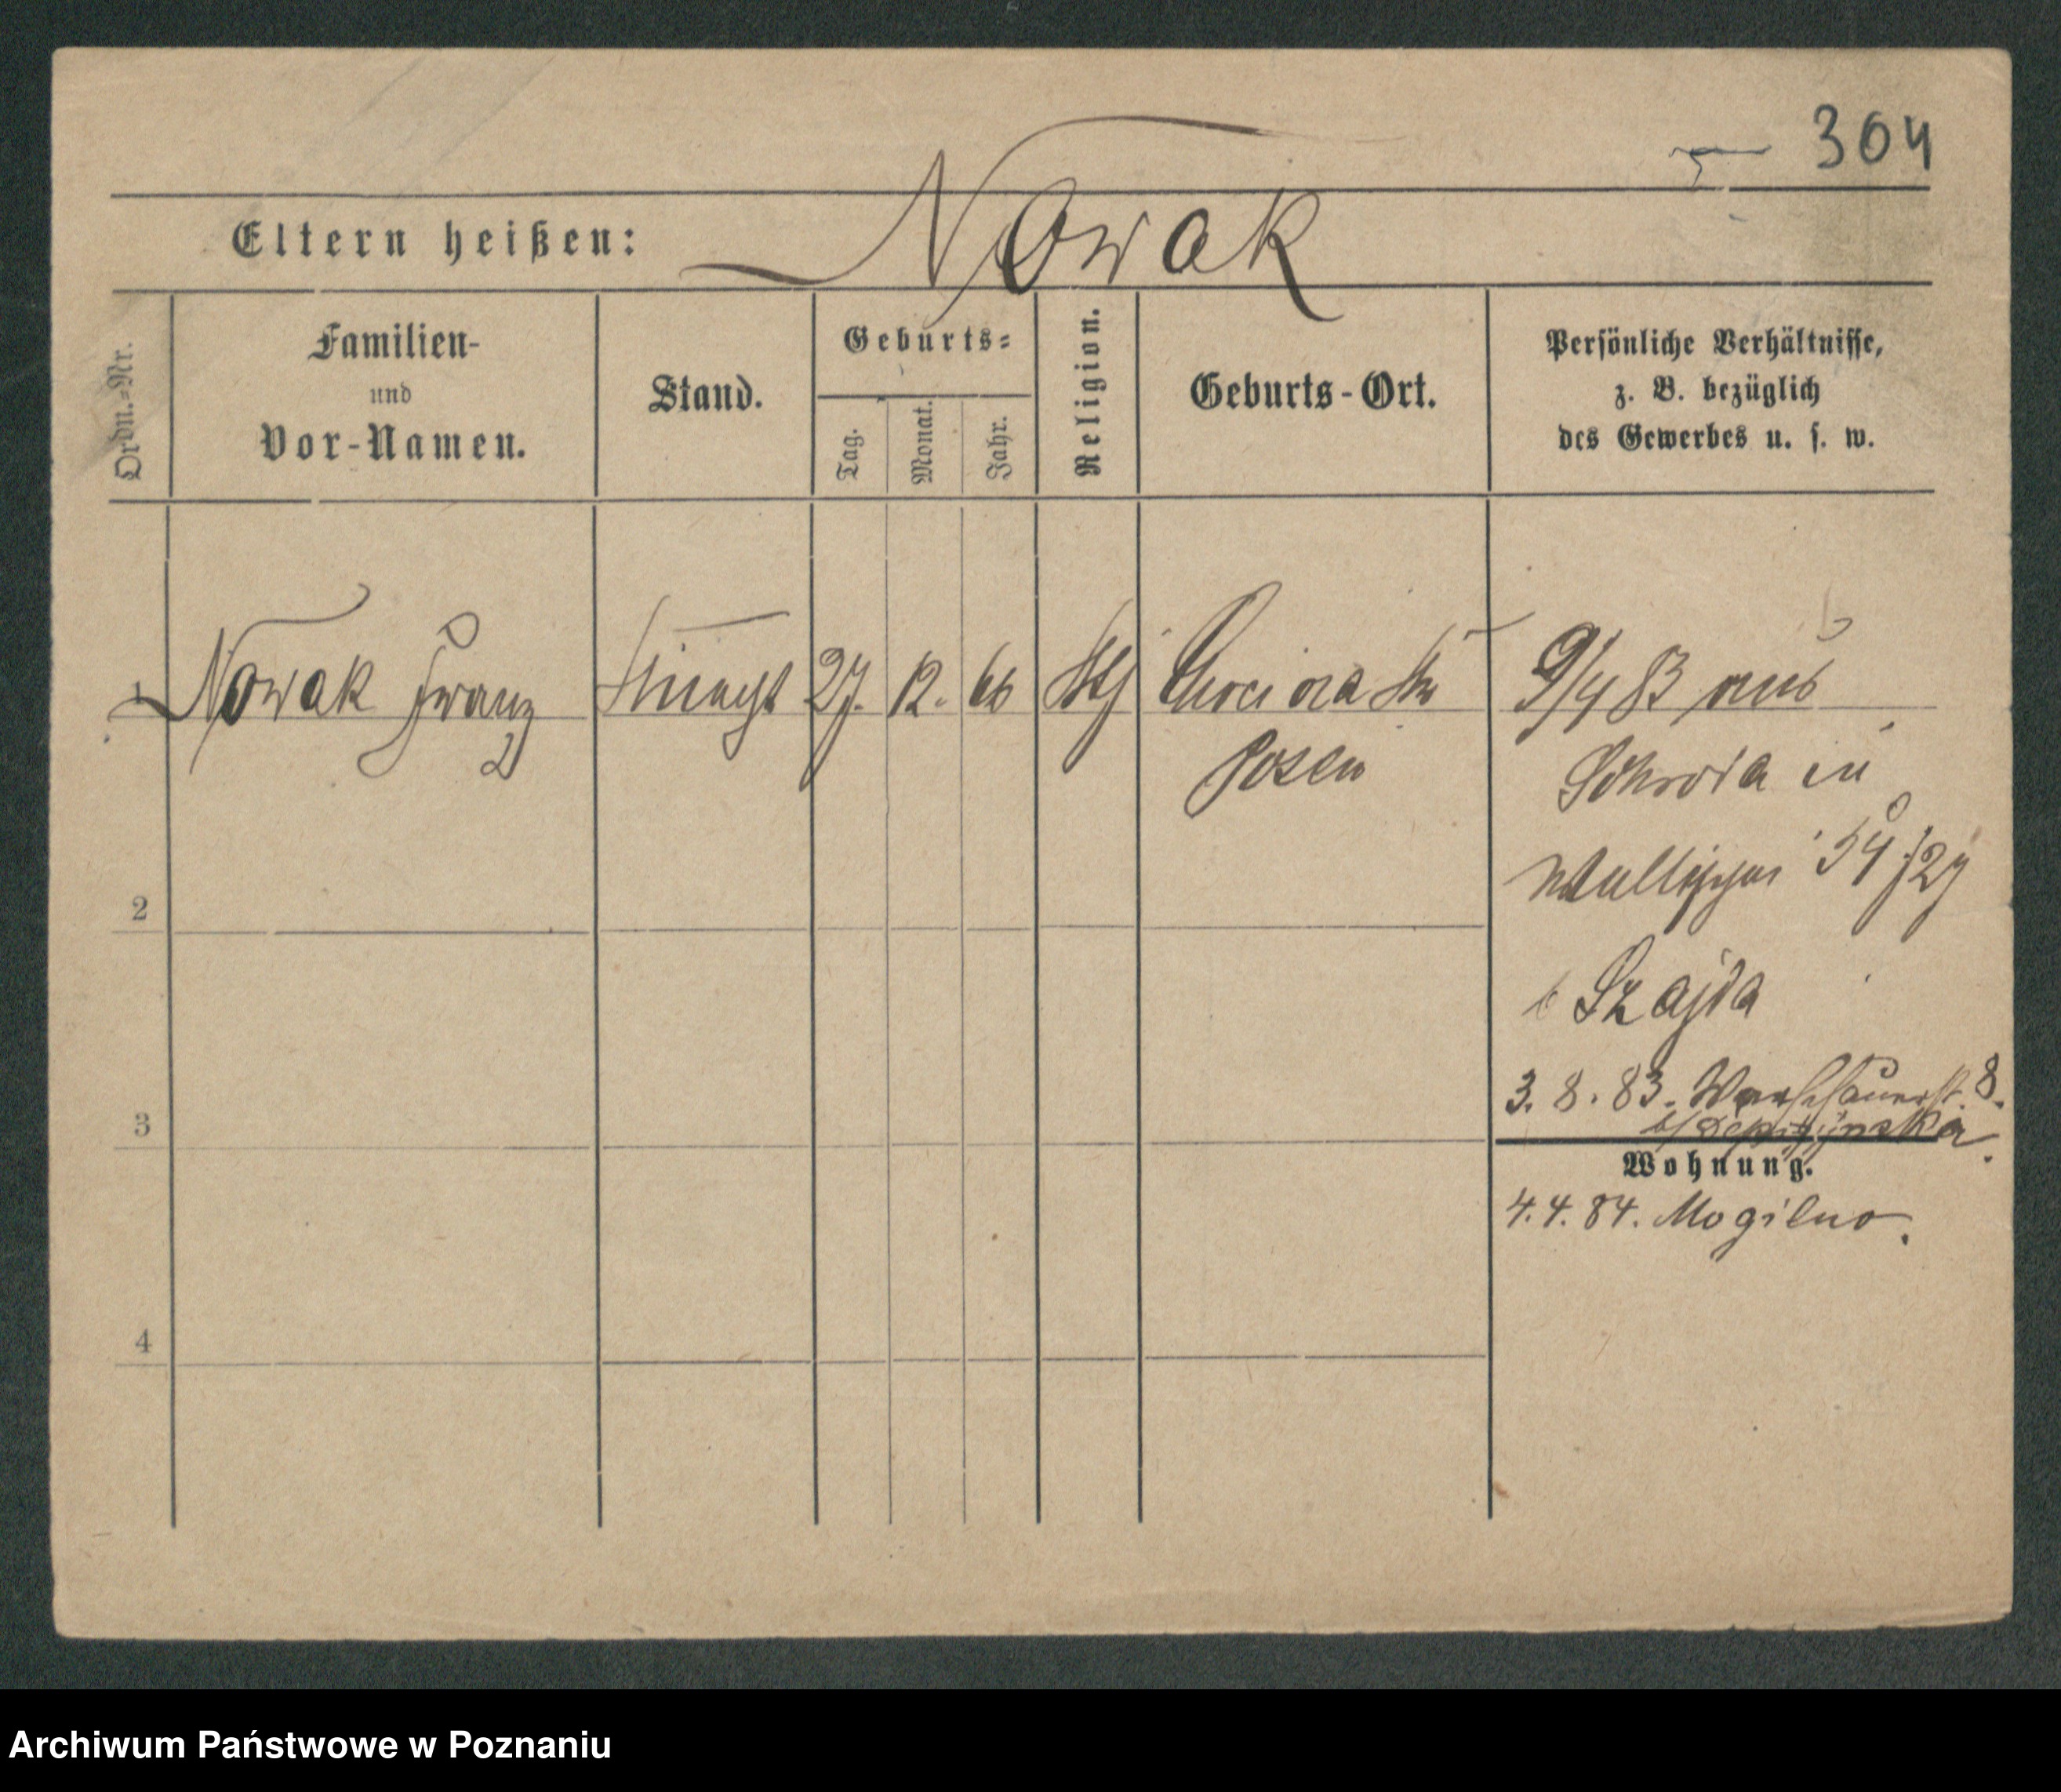 304
Eltern heißen: Nowak
Ordn.-Nr.
Familien-
und
Vor-Namen.
Stand.
Geburts-
Tag.
Monat.
Jahr.
Religion.
Geburts-Ort.
Persönliche Verhältnisse,
z. B. bezüglich
des Gewerbes u. s. w.
1 Nowak Franz 27. 12. 66 9/4 83 aus
Posen
Schroda in
Wallischei 54/27
b Szajda
3. 8. 83. Warschauerst. 8.
Wohnung.
4. 4. 84. Mogilno.
2
3
4
Archiwum Państwowe w Poznaniu